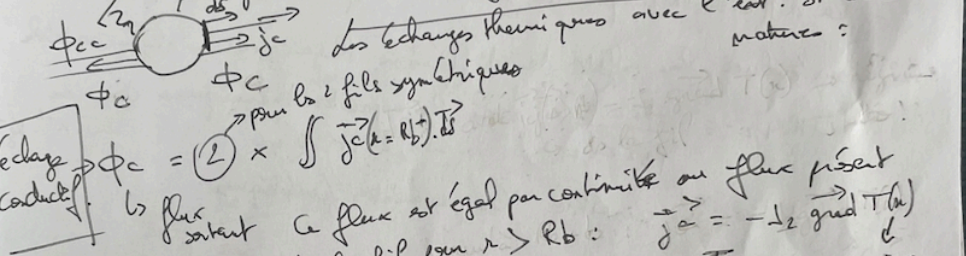 Les échanges thermiques avec l'ext.
nature :
2η
ds
Φcc
jc
Φc
Φc
pour les 2 fils symétriques
échange conductif.
Φc = 2 × ∬ jc(r = Rb⁺).ds
↳ flux sortant
Ce flux est égal par continuité au flux présent
pour r > Rb : jc = -λ2 grad T(r)